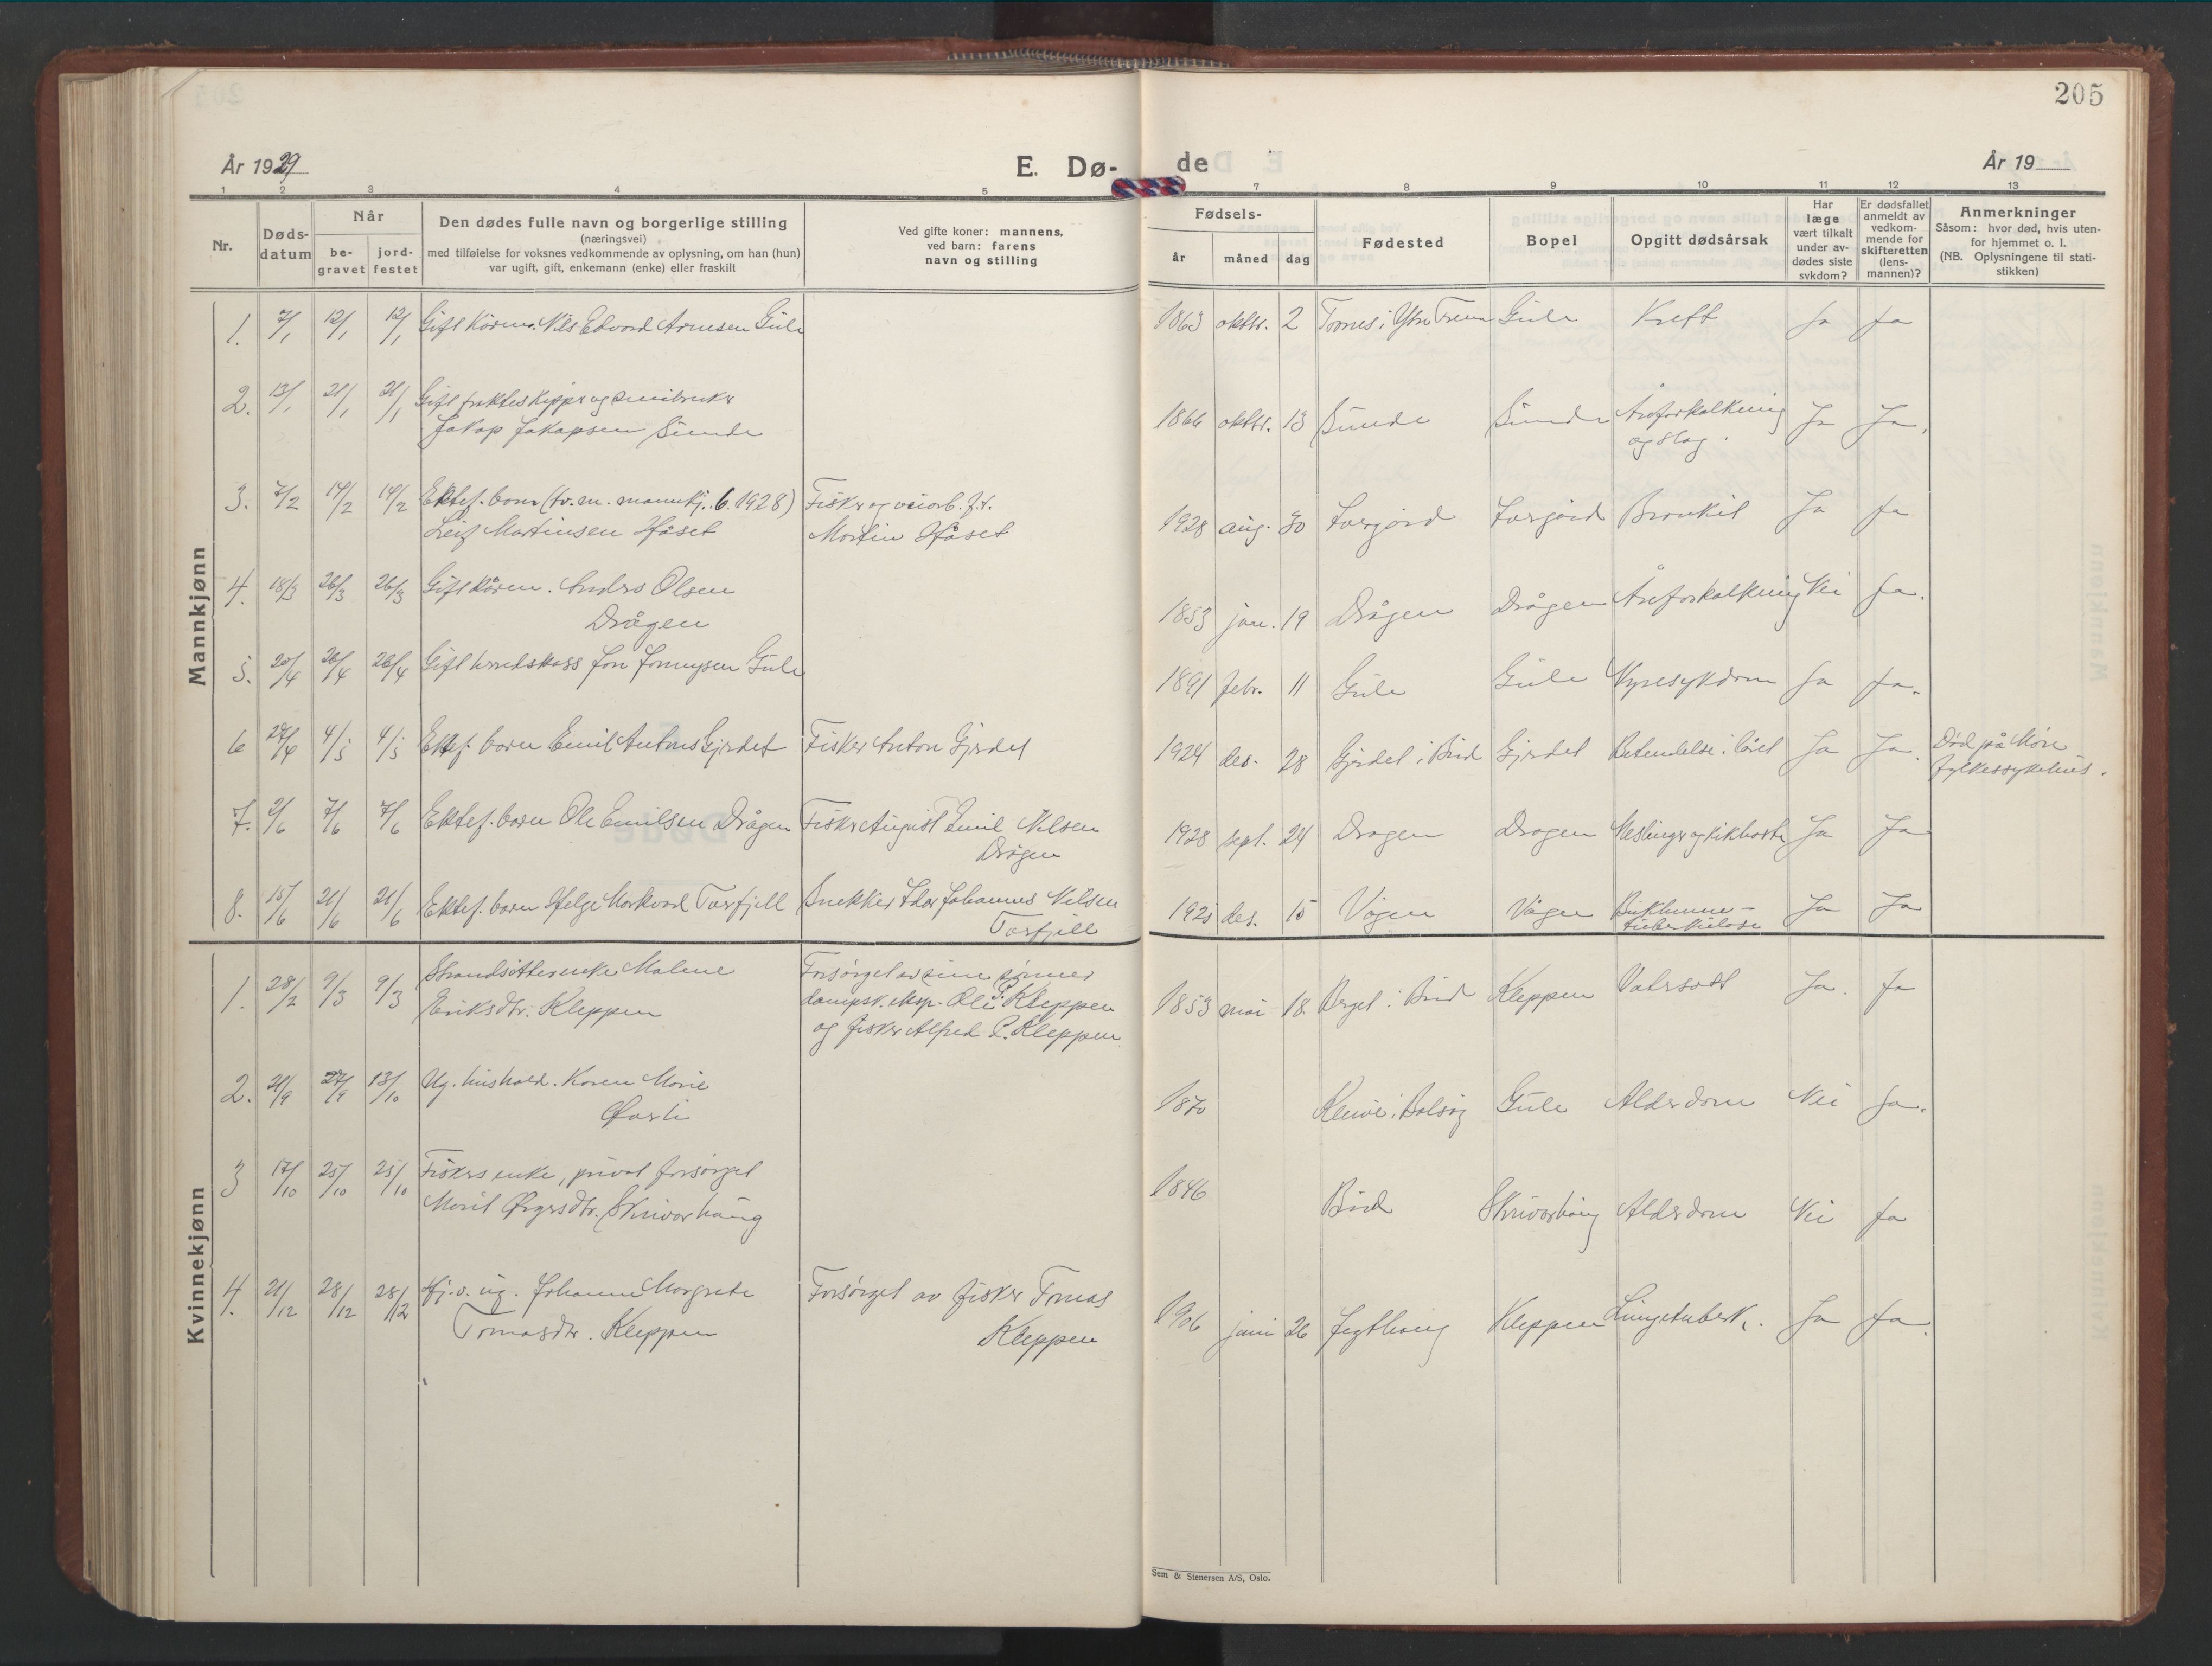 205
År 1929
E. Dø-
de
År 19
1 2 3 4 5
7 8 9 10 11 12 13
Nr.
Døds-
datum
Når
be-
gravet
jord-
festet
Den dødes fulle navn og borgerlige stilling
(næringsvei)
med tilføielse for voksnes vedkommende av oplysning, om han (hun)
var ugift, gift, enkemann (enke) eller fraskilt
Ved gifte koner: mannens,
ved barn: farens
navn og stilling
Fødsels-
år
måned
dag
Fødested
Bopel
Opgitt dødsårsak
Har
læge
vært tilkalt
under av-
dødes siste
sykdom?
Er dødsfallet
anmeldt av
vedkom-
mende for
skifteretten
(lens-
mannen)?
Anmerkninger
Såsom: hvor død, hvis uten-
for hjemmet o. l.
(NB. Oplysningene til stati-
stikken)
Mannkjønn
1. 7/1 12/1 12/1 Gift Nils Edvard Arnesen Gule
1863 oktbr. 2 Gule Kreft Ja Ja
2. 13/1 21/1 21/1 Gift
Jakop Jakopsen Sunde
1866 oktbr. 13 Sunde Sunde Åreforkalkning
og slag. Ja Ja.
3. 7/2 14/2 14/2 Ektef. barn (tv. m. mannkj. 6. 1928)
Leif Martinsen Håset
Fisker og veiarb. f.t.
Martin Håset
1928 aug. 30 Bronkit Ja Ja
4. 18/3 26/3 26/3 Gift Anders Olsen
Drågen
1853 jan. 19 Drågen Drågen Åreforkalkning Nei Ja.
5. 20/4 26/4 26/4 Gift Jon Gule
1891 febr. 11 Gule Gule Nyresykdom Ja Ja.
6 27/4 4/5 4/5 Ektef. barn Emil Antons Gjerdet
Fisker Anton Gjerdet
1924 des. 28 Gjerdet i Bud Gjerdet Betendelse i låret Ja Ja.
Død på Møre
fylkessykehus.
7. 2/6 7/6 7/6 Ektef. barn Ole Emilsen Drågen
Fisker August Emil Nilsen
Drågen
1928 sept. 24 Drågen Drågen Meslinger og kikhoste Ja Ja
8. 15/6 21/6 21/6 Ektef. barn Helge Markvard Tarfjell
Snekker Johannes Nilsen
Tarfjell
1925 des. 15 Vågen Vågen Bukhinne-
tuberkulose Ja Ja
Kvinnekjønn
1. 28/2 9/3 9/3 Strandsitterenke Malene
Eriksdtr. Kleppen
Forsørget av sine sønner
dampsk.eksp. Ole P. Kleppen
og fisker Alfred P. Kleppen
1853 mai 18. Berget i Bud Kleppen Vatersott Ja. Ja
2. 21/9 27/9 13/10 Ug. hushold. Karen Marie
Øverli
1870 Kleive i Bolsøy Gule Alderdom Nei Ja.
3 17/10 25/10 25/10 Fiskers enke, privat forsørget
Marit Skrivarhaug
1846 Bud Skrivarhaug Alderdom Nei Ja
4. 21/12 28/12 28/12 Hj.v. ug. Johanne Margrete
Tomasdtr. Kleppen
Forsørget av fisker Tomas
Kleppen
1906 juni 26 Jegthaug Kleppen Lungetuberk. Ja Ja.
Sem & Stenersen A/S, Oslo.